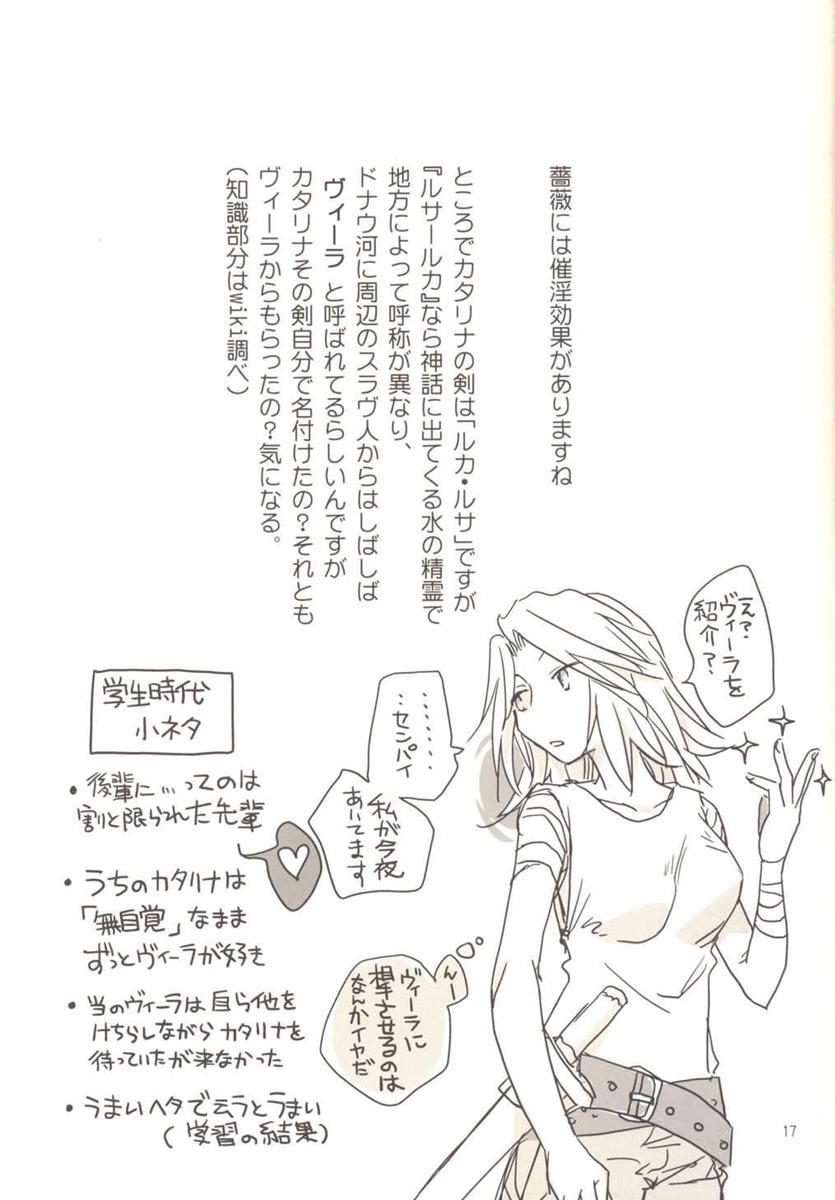 薔薇には催淫効果がありますね
ところでカタリナの剣は「ルカ・ルサ」ですが
『ルサールカ』なら神話に出てくる水の精霊で
地方によって呼称が異なり、
ドナウ河に周辺のスラヴ人からはしばしば
ヴィーラ と呼ばれてるらしいんですが
カタリナその剣自分で名付けたの?それとも
ヴィーラからもらったの?気になる。
(知識部分はwiki調べ)
え?
ヴィーラを
紹介?
‥‥‥‥
‥センパイ
私が今夜
あいてます
んー
ヴィーラに
相手させるのは
なんかイヤだ
学生時代
小ネタ
・後輩に…ってのは
割と限られた先輩
・うちのカタリナは
「無自覚」なまま
ずっとヴィーラが好き
・当のヴィーラは自ら他を
けちらしながらカタリナを
待っていたが来なかった
・うまいヘタで云うとうまい
(学習の結果)
17